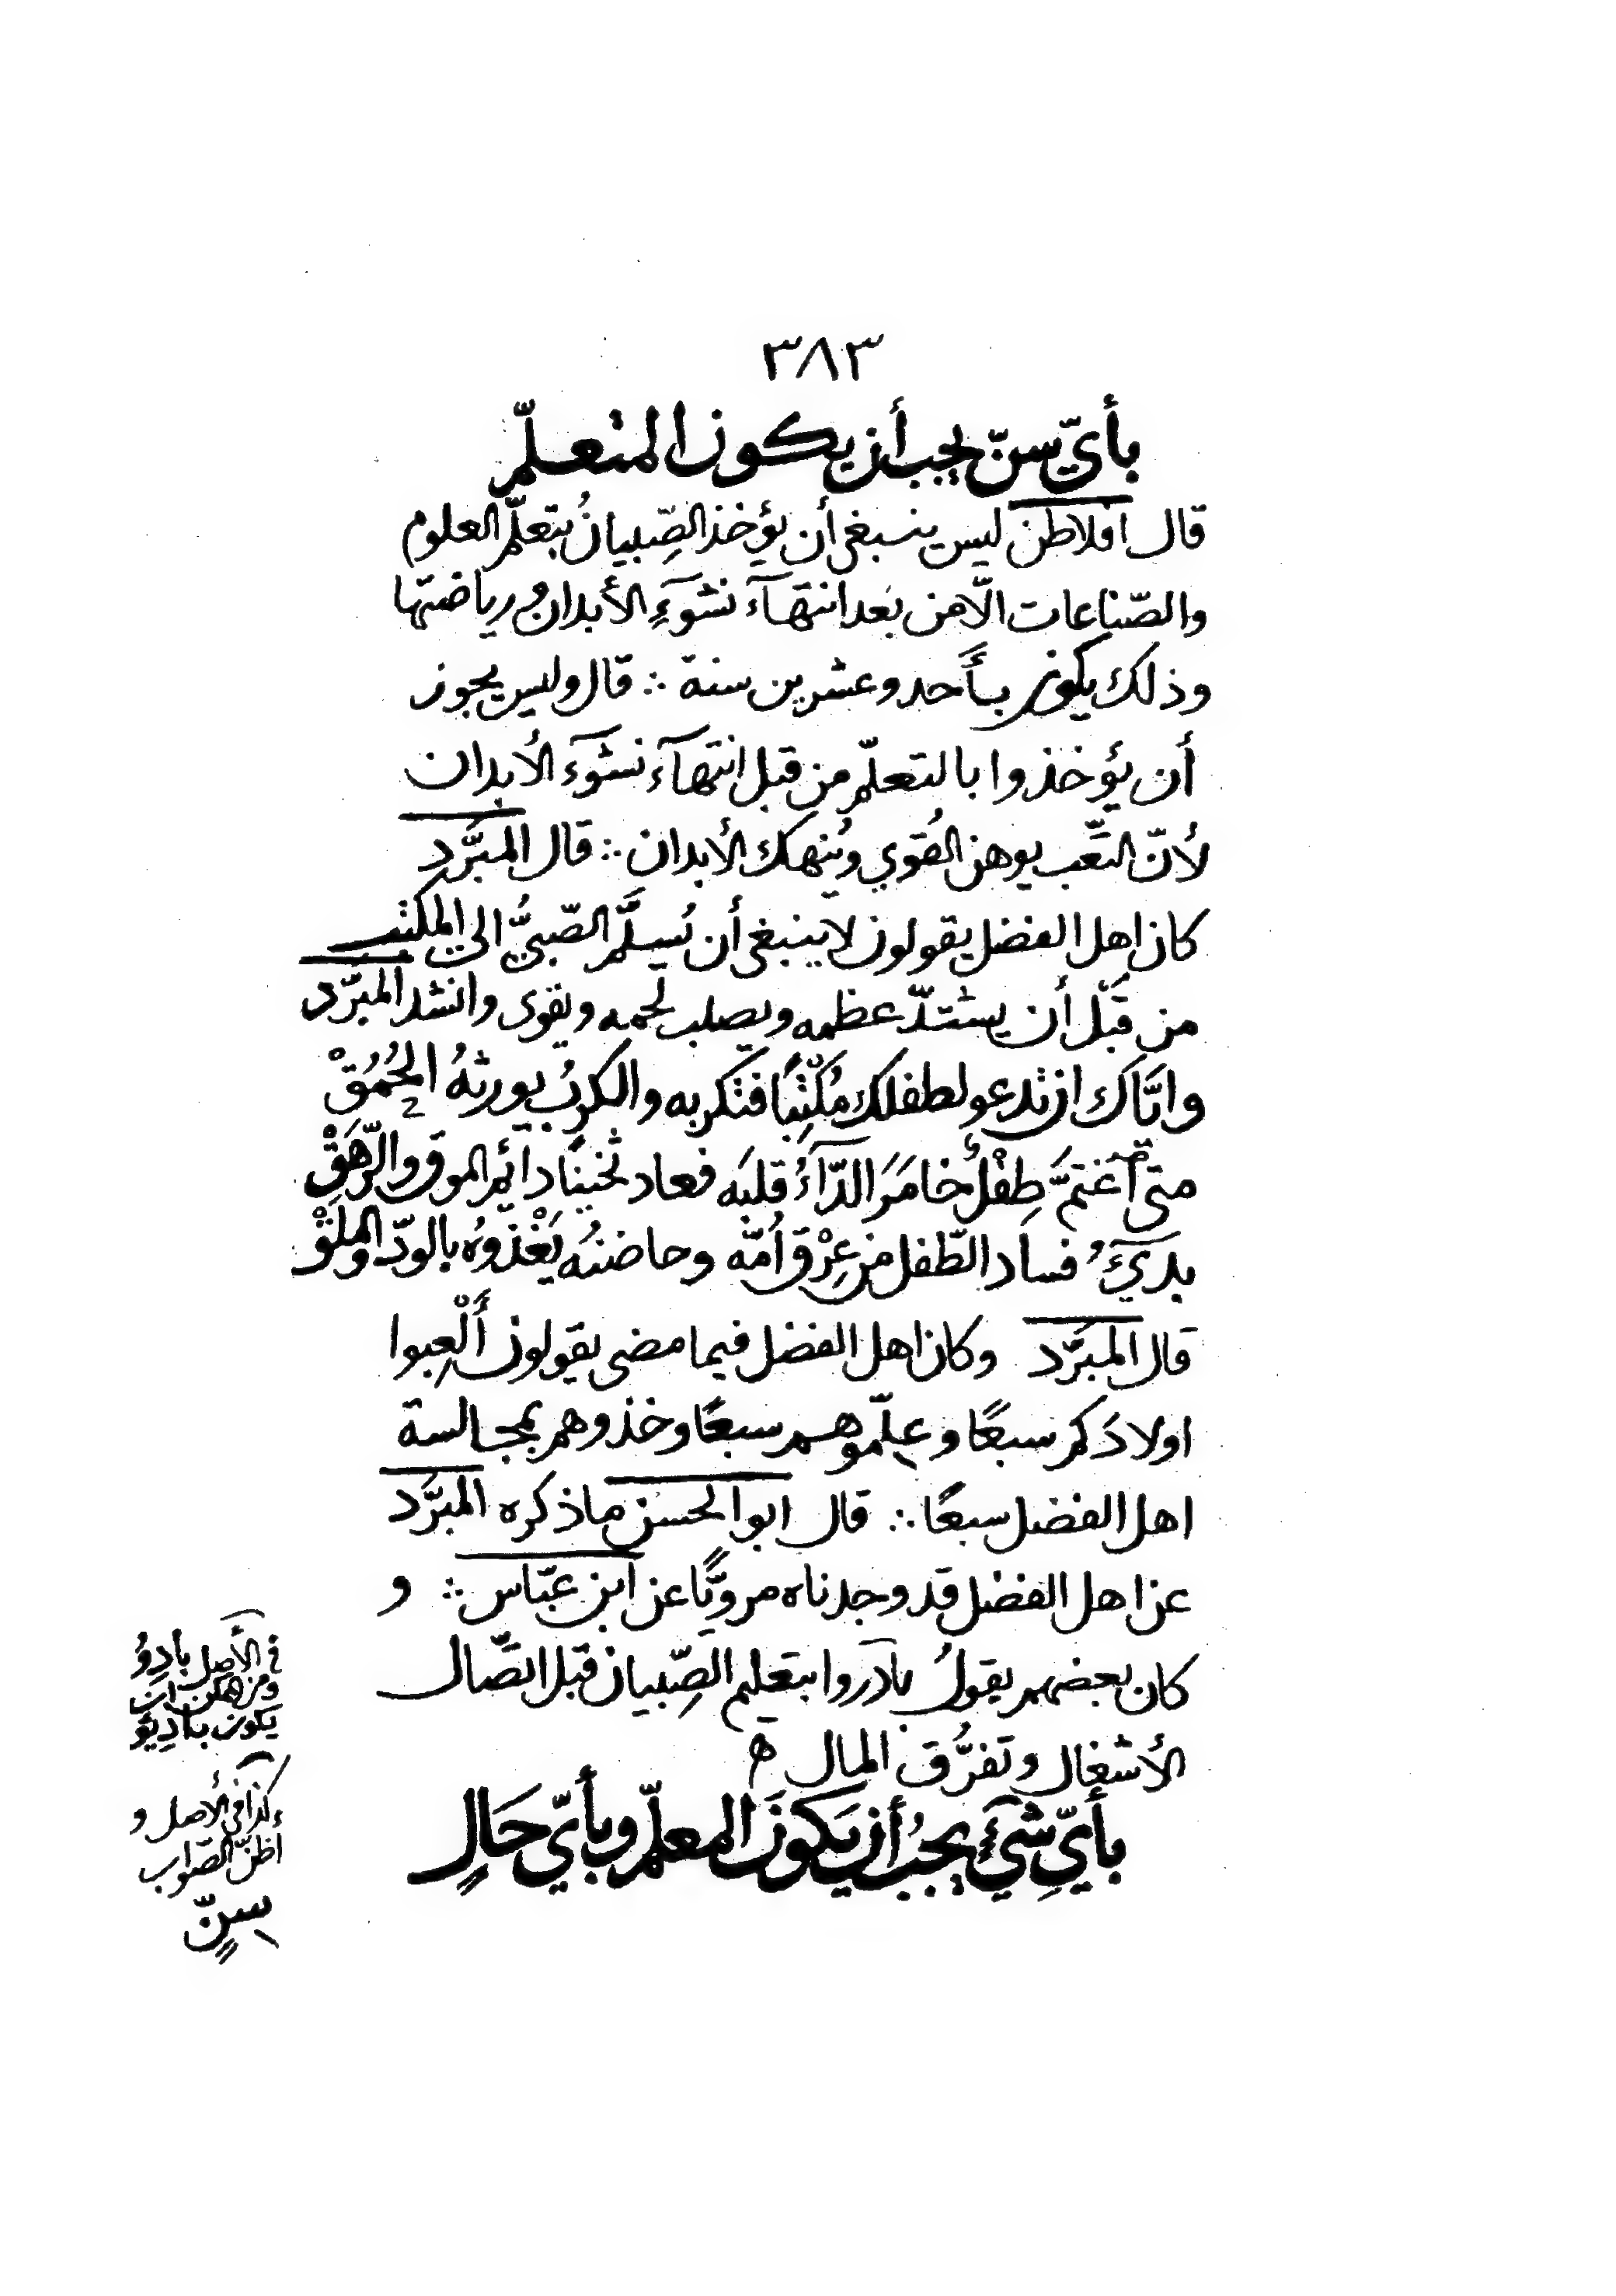 ٣٨٣
بأيّ سنّ يجب أن يكون المتعلّم
قال افلاطن ليس ينبغي أن يؤخذ الصِّبيانُ بتعلّم العلوم
والصّناعات الّا من بَعد انتهآء نشوءِ الأبدان ورياضتها
وذلك يكون بأَحد وعشرين سنة ∴ قال وليس يجوز
أن يؤخذوا بالتعلّم من قبل انتهآء نشوءَ الأبدان
لأنّ التّعب يوهن القُوي ويُنهك الأبدان ∴ قال المبرَّد
كان اهل الفضل يقولون لا ينبغي أن يُسلَّم الصّبيُّ الي المكتب
من قَبْل أن يشتدّ عظمه ويصلب لحمه ويقوى وانشد المبرَّد
وايّاك ان تدعو لطفلك مُكْتِبًا فتكربه والكربُ يورثهُ الحُمُقْ
متى اغتمَّ طِفْلٌ خامَرَ الدّآءُ قلبَه فعاد ثخينًا دائم الموق والرَّهَقْ
بديءُ فساد الطّفل من عِرْق أمّه وحاضنُه يَغْذوهُ بالودّ والملَقْ
قال المبرَّد وكان اهل الفضل فيما مضى يقولون أَلْعِبوا
اولادَكم سبعًا وعلّموهم سبعًا وخذوهم بمجالسة
اهل الفضل سبعًا ∴ قال ابو الحسن ما ذكره المبرَّد
عن اهل الفضل قد وجدناه مرويًّا عن ابن عبّاس ∴ و
كان بعضهم يقولُ بادروا بتعليم الصِّبيان قبل اتّصال
الأشغال وتفرُّق المال ه
بأيِّ شيءٍ يجبُ أن يَكونَ المعلّم وبأيّ حَالٍ
في الأصل بادِوُ
وممكن ان
يكون بادِيؤ
كذا في الأصل و
اظنّ الصّواب
سِنٍّ